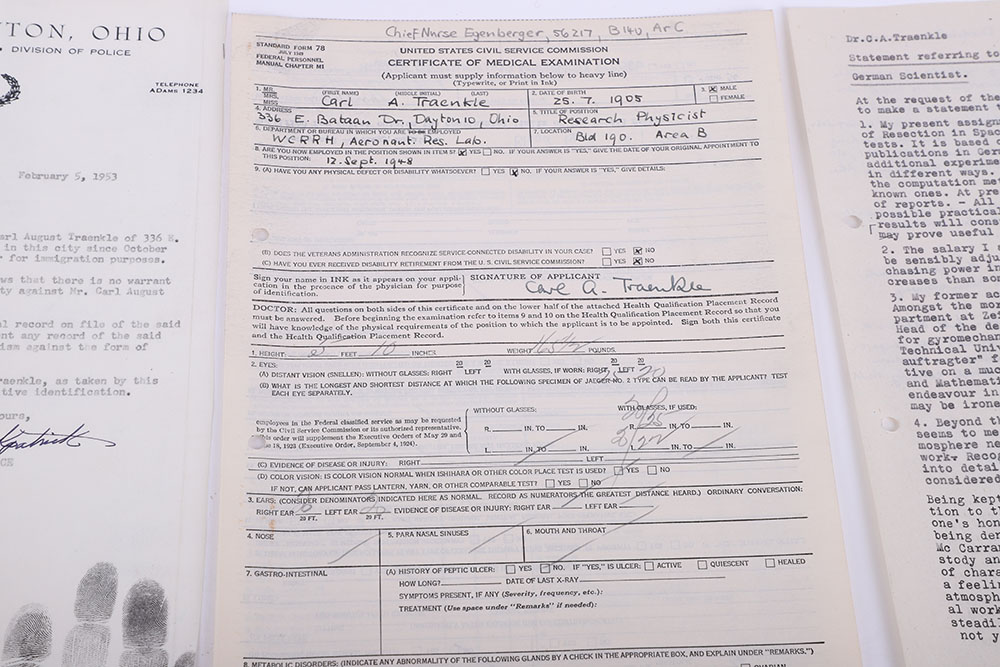 TON, OHIO
DIVISION OF POLICE
TELEPHONE
ADAMS 1234
February 5, 1953
arl August Traenkle of 336 E.
in this city since October
for immigration purposes.
ws that there is no warrant
ty against Mr. Carl August
l record on file of the said
nt any record of the said
ism against the form of
raenkle, as taken by this
tive identification.
ours,
Chief Nurse Egenberger, 56217, B140, Ar C
STANDARD FORM 78
JULY 1949
FEDERAL PERSONNEL
MANUAL CHAPTER M1
UNITED STATES CIVIL SERVICE COMMISSION
CERTIFICATE OF MEDICAL EXAMINATION
(Applicant must supply information below to heavy line)
(Typewrite, or Print in Ink)
1. MR. MRS. MISS (FIRST NAME) (MIDDLE INITIAL) (LAST)
Carl A. Traenkle
2. DATE OF BIRTH
25. 7. 1905
3. X MALE
FEMALE
4. ADDRESS
336 E. Bataan Dr., Dayton 10, Ohio
5. TITLE OF POSITION
Research Physicist
6. DEPARTMENT OR BUREAU IN WHICH YOU ARE EMPLOYED
WCRRH, Aeronant. Res. Lab.
7. LOCATION
Bld 190. Area B
8. ARE YOU NOW EMPLOYED IN THE POSITION SHOWN IN ITEM 5? X YES NO. IF YOUR ANSWER IS "YES," GIVE THE DATE OF YOUR ORIGINAL APPOINTMENT TO
THIS POSITION: 12. Sept. 1948
9. (A) HAVE YOU ANY PHYSICAL DEFECT OR DISABILITY WHATSOEVER? YES X NO. IF YOUR ANSWER IS "YES," GIVE DETAILS:
(B) DOES THE VETERANS ADMINISTRATION RECOGNIZE SERVICE-CONNECTED DISABILITY IN YOUR CASE? YES X NO
(C) HAVE YOU EVER RECEIVED DISABILITY RETIREMENT FROM THE U. S. CIVIL SERVICE COMMISSION? YES X NO
Sign your name in INK as it appears on your appli-
cation in the presence of the physician for purpose
of identification.
SIGNATURE OF APPLICANT
Carl A. Traenkle
DOCTOR: All questions on both sides of this certificate and on the lower half of the attached Health Qualification Placement Record
must be answered. Before beginning the examination refer to items 9 and 10 on the Health Qualification Placement Record so that you
will have knowledge of the physical requirements of the position to which the applicant is to be appointed. Sign both this certificate
and the Health Qualification Placement Record.
1. HEIGHT: 5 FEET 10 INCHES WEIGHT 165½ POUNDS.
2. EYES:
(A) DISTANT VISION (SNELLEN): WITHOUT GLASSES: RIGHT 20 LEFT 20 WITH GLASSES, IF WORN: RIGHT 20 LEFT 20
(B) WHAT IS THE LONGEST AND SHORTEST DISTANCE AT WHICH THE FOLLOWING SPECIMEN OF JAEGER NO. 2 TYPE CAN BE READ BY THE APPLICANT? TEST
EACH EYE SEPARATELY.
employees in the Federal classified service as may be requested
by the Civil Service Commission or its authorized representative.
order will supplement the Executive Orders of May 29 and
18, 1923 (Executive Order, September 4, 1924).
WITHOUT GLASSES:
R. IN. TO IN.
L. IN. TO IN.
WITH GLASSES, IF USED:
R. IN. TO IN.
L. IN. TO IN.
(C) EVIDENCE OF DISEASE OR INJURY: RIGHT LEFT
(D) COLOR VISION: IS COLOR VISION NORMAL WHEN ISHIHARA OR OTHER COLOR PLATE TEST IS USED? YES NO
IF NOT, CAN APPLICANT PASS LANTERN, YARN, OR OTHER COMPARABLE TEST? YES NO
3. EARS: (CONSIDER DENOMINATORS INDICATED HERE AS NORMAL. RECORD AS NUMERATORS THE GREATEST DISTANCE HEARD.) ORDINARY CONVERSATION:
RIGHT EAR 20 FT. LEFT EAR 20 FT. EVIDENCE OF DISEASE OR INJURY: RIGHT EAR LEFT EAR
4. NOSE
5. PARA NASAL SINUSES
6. MOUTH AND THROAT
7. GASTRO-INTESTINAL
(A) HISTORY OF PEPTIC ULCER: YES NO. IF "YES," IS ULCER: ACTIVE QUIESCENT HEALED
HOW LONG? DATE OF LAST X-RAY
SYMPTOMS PRESENT, IF ANY (Severity, frequency, etc.):
TREATMENT (Use space under "Remarks" if needed):
8. METABOLIC DISORDERS: (INDICATE ANY ABNORMALITY OF THE FOLLOWING GLANDS BY A CHECK IN THE APPROPRIATE BOX, AND EXPLAIN UNDER "REMARKS.")
OVARIAN
Dr.C.A.Traenkle
Statement referring to
German Scientist.
At the request of the
to make a statement t
1. My present assign
of Resection in Space
tests. It is based o
publications in Germ
additional experime
in different ways.
the computation met
known ones. At pre
of reports. - All
possible practical
results will cons
may prove useful
2. The salary I
be sensibly adju
chasing power in
creases than som
3. My former ac
Amongst the mor
partment at Zei
Head of the de
for gyromechan
Technical Univ
auftragter" f
tive on a muc
and Mathemati
endeavour in
may be irone
4. Beyond th
seems to me
mosphere ne
work. Recog
into detai
considered
Being kept
tion to th
one's hon
being den
Mc Carran
study an
of chara
a feelin
atmosph
al work
steadil
not y